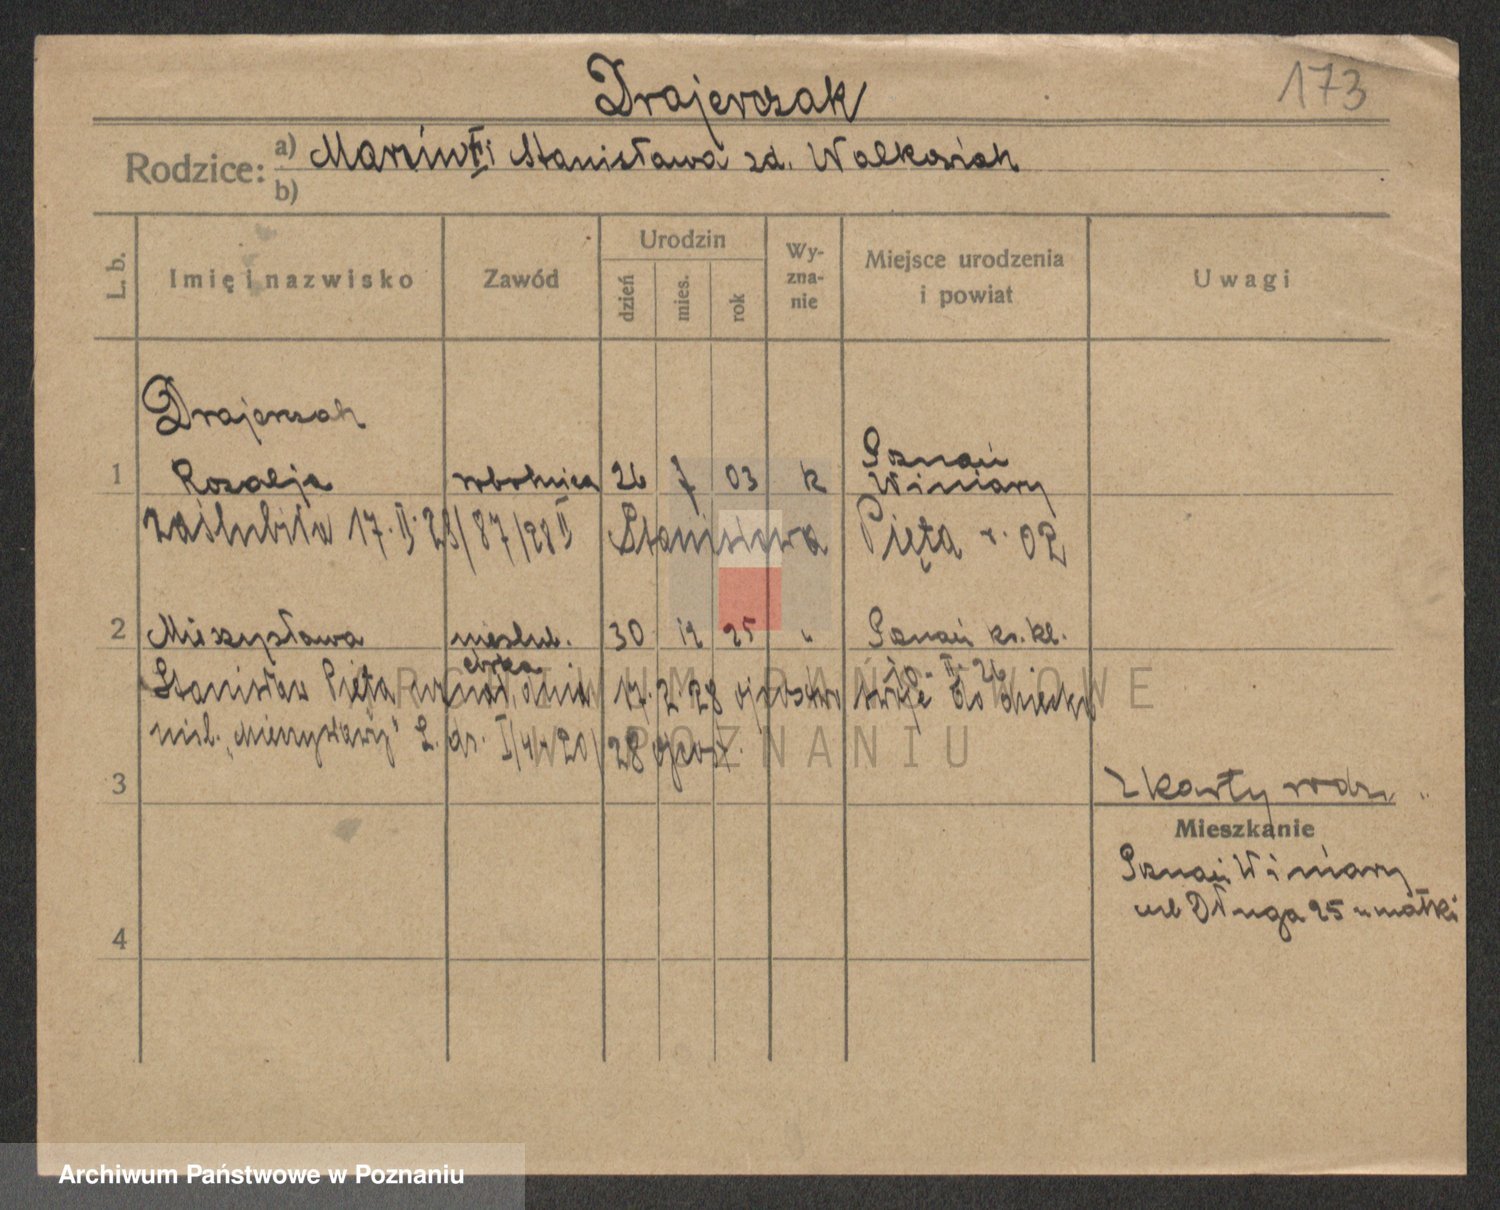 173
Drajerczak
Rodzice: a) Marcin † i Stanisława zd. Walkowiak
b)
L. b. Imię i nazwisko Zawód Urodzin dzień mies. rok Wyznanie Miejsce urodzenia i powiat Uwagi
Drajerczak
1 Rozalja robotnica 26 7 03 k Poznań Winiary
zaślubiła 17.II.28/87/28 II Stanisława Pięta r. 02
2 Mieczysława nieślub. córka 30 12 25 " Poznań ks. kl.
10. II. 26
Stanisław Pięta dnia 17.2.28 ojcostwo swoje do dziecka
niśl. „Mieczysławy" L. dz. 20/28
3
Z karty rodz.
Mieszkanie
Poznań Winiary
ul Długa 25 u matki
4
ARCHIWUM PAŃSTWOWE
W POZNANIU
Archiwum Państwowe w Poznaniu